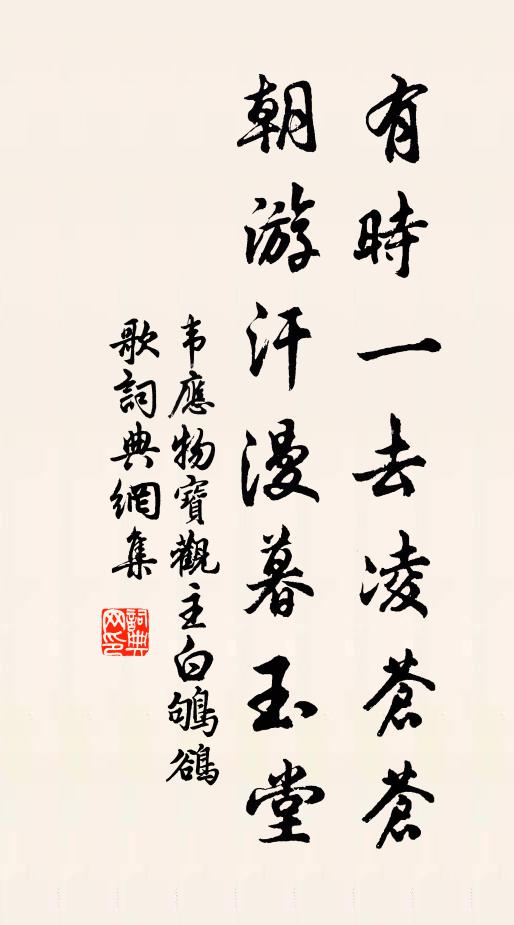 有時一去凌蒼蒼
朝游汗漫暮玉堂
韦應物寶觀主白鴝鵒
歌詞典網集
詞典網印